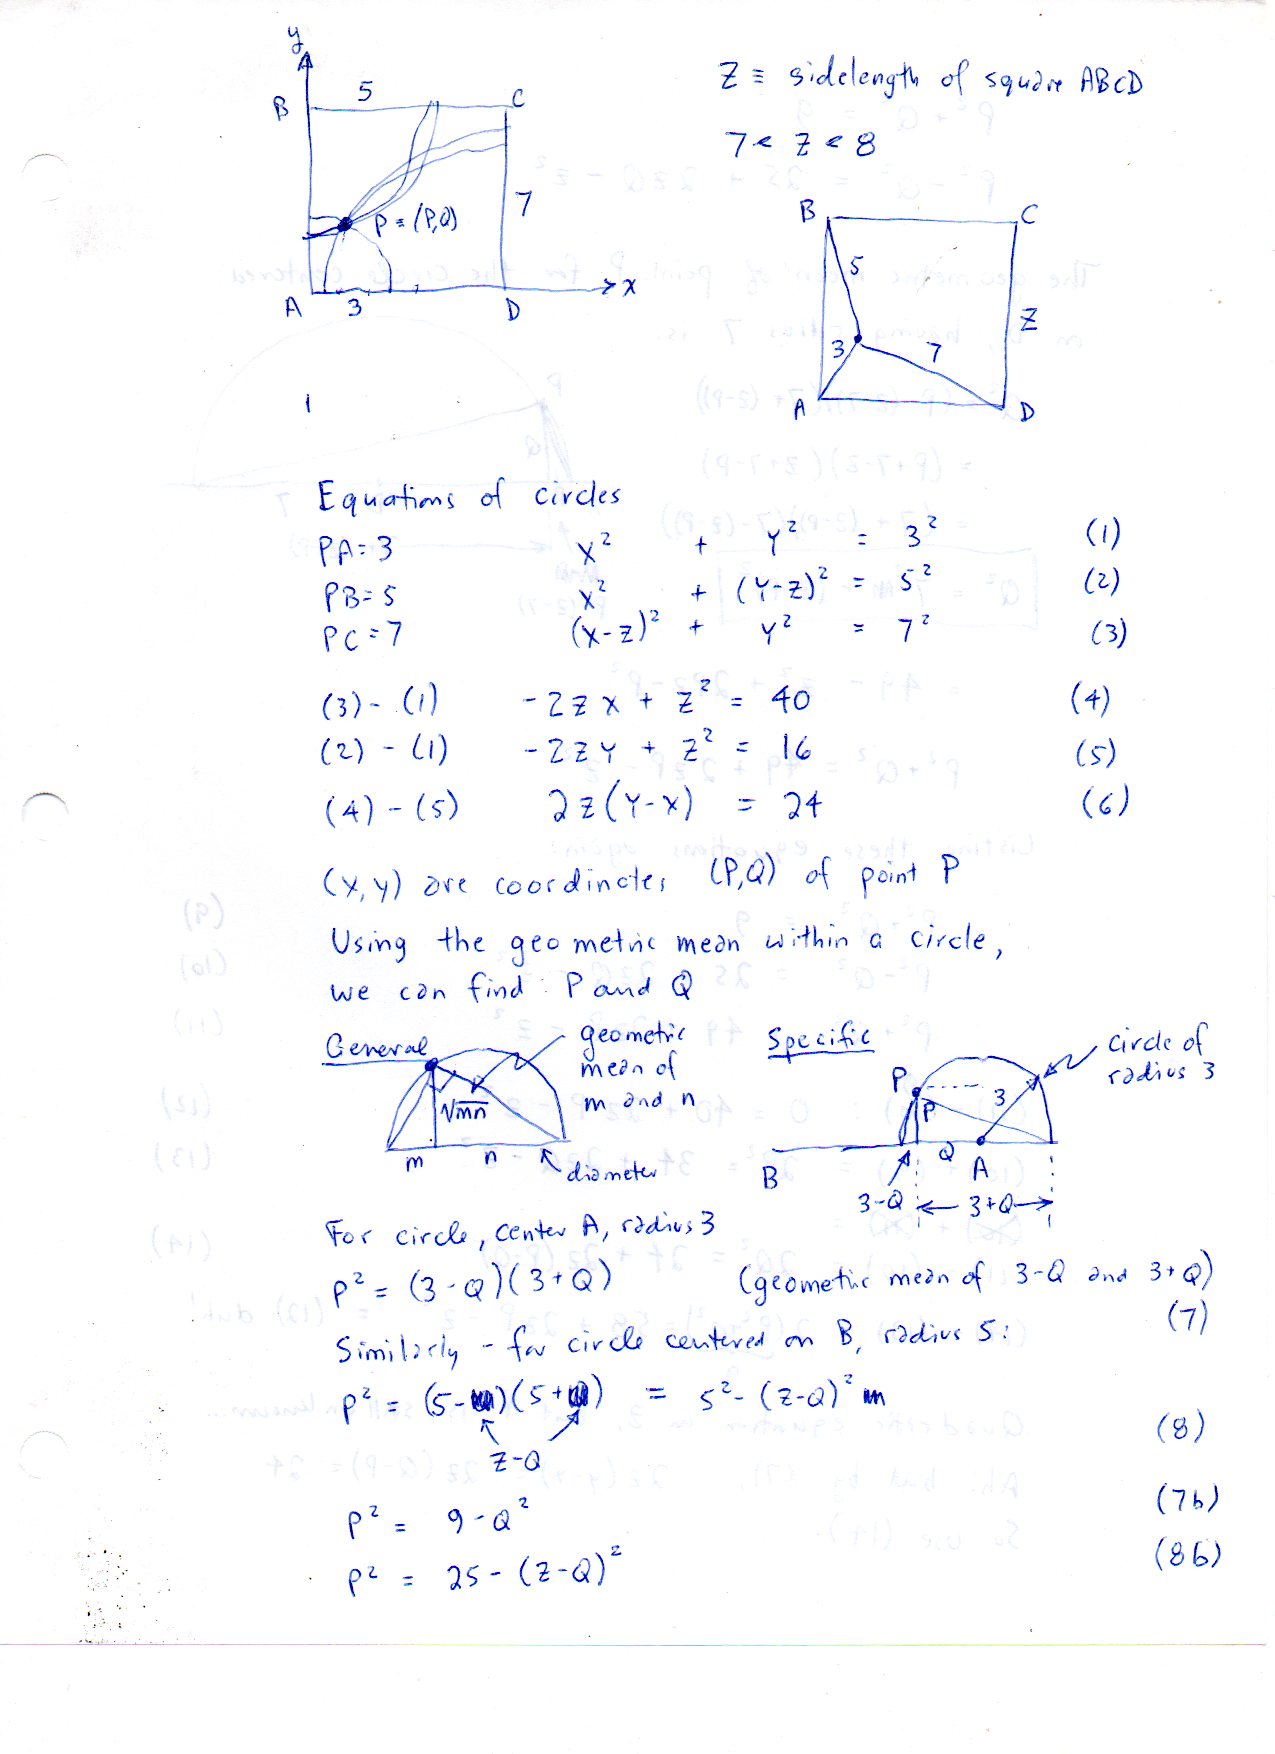 y
B 5 C
7
P = (P,Q)
A 3 D x
Z ≡ sidelength of square ABCD
7 < Z < 8
B C
5
Z
3 7
A D
Equations of circles
PA = 3 x² + y² = 3² (1)
PB = 5 x² + (y-z)² = 5² (2)
PC = 7 (x-z)² + y² = 7² (3)
(3) - (1) -2zx + z² = 40 (4)
(2) - (1) -2zy + z² = 16 (5)
(4) - (5) 2z(y-x) = 24 (6)
(x,y) are coordinates (P,Q) of point P
Using the geometric mean within a circle,
we can find P and Q
General
geometric
mean of
m and n
√mn
m n
diameter
Specific
circle of
radius 3
P
3
P
B Q A
3-Q 3+Q
For circle, center A, radius 3
P² = (3-Q)(3+Q) (geometric mean of 3-Q and 3+Q)
(7)
Similarly - for circle centered on B, radius 5:
P² = (5- )(5+ ) = 5² - (Z-Q)²
Z-Q
(8)
P² = 9 - Q² (7b)
P² = 25 - (Z-Q)² (8b)